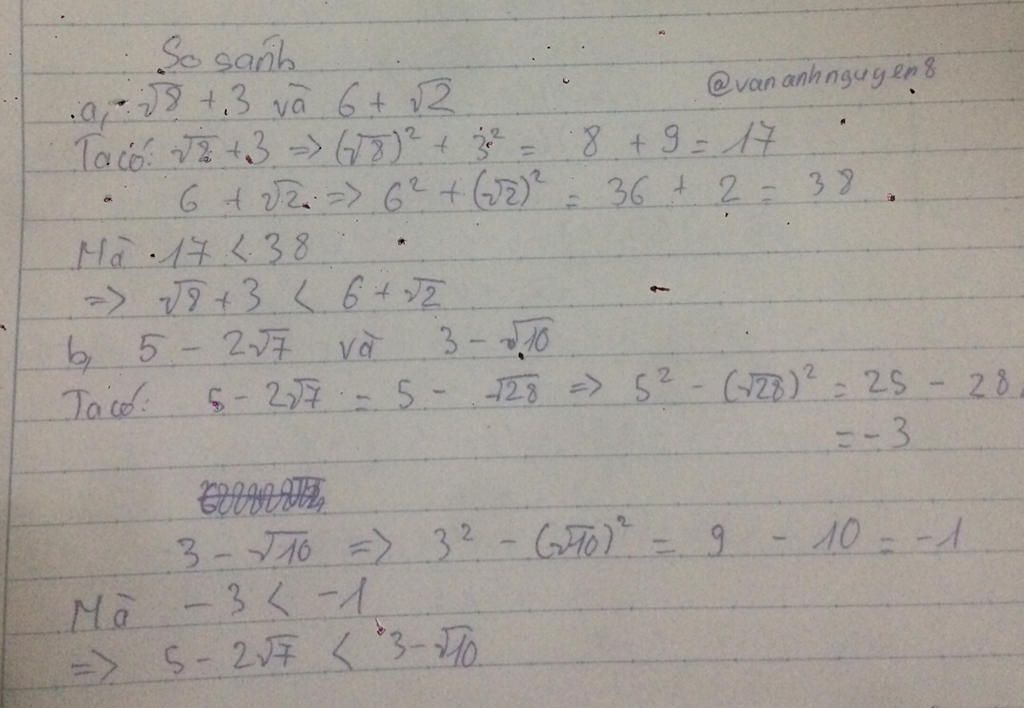 So sánh
a, √8 + 3 và 6 + √2
@vananhnguyen8
Ta có: √8 + 3 => (√8)² + 3² = 8 + 9 = 17
6 + √2 => 6² + (√2)² = 36 + 2 = 38
Mà 17 < 38
=> √8 + 3 < 6 + √2
b, 5 - 2√7 và 3 - √10
Ta có: 5 - 2√7 = 5 - √28 => 5² - (√28)² = 25 - 28
= -3
3 - √10 => 3² - (√10)² = 9 - 10 = -1
Mà -3 < -1
=> 5 - 2√7 < 3 - √10